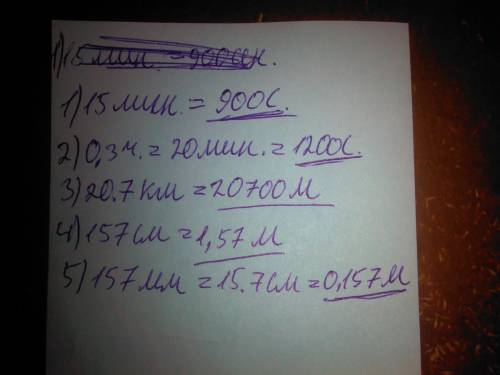 1) 15 мин. = 900 сек.
1) 15 мин. = 900с.
2) 0,3ч. = 20 мин. = 1200с.
3) 20.7 км = 20700 м
4) 157 см = 1,57 м
5) 157 мм = 15.7 см = 0,157 м